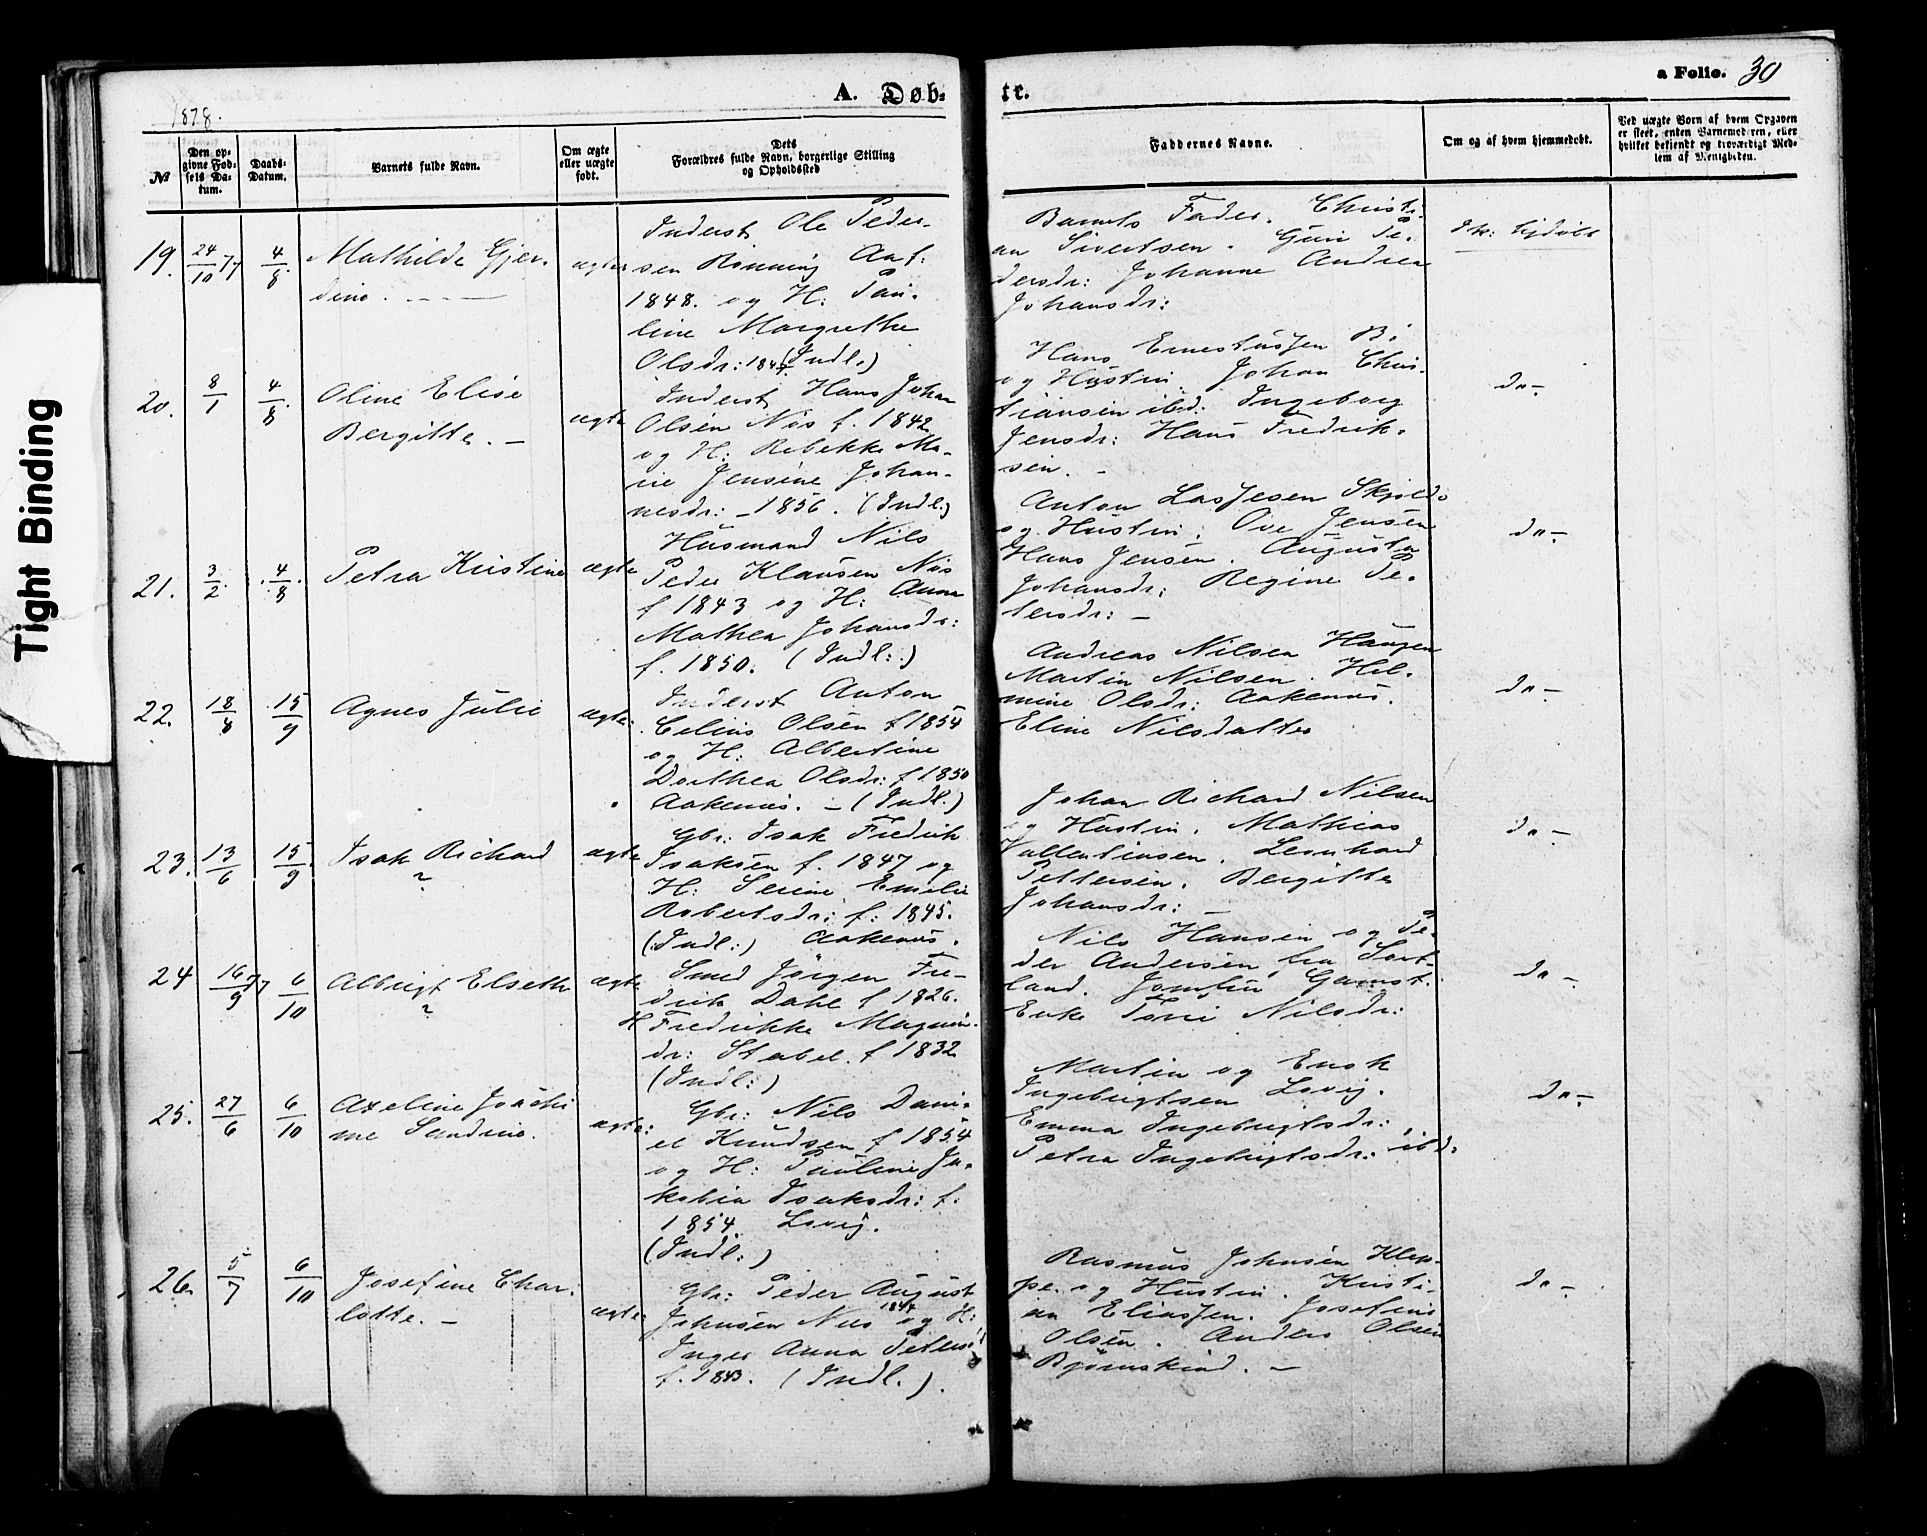 Tight Binding
1878.
A. Døb-
te.
a Folio. 30
№
Den op-
givne Fød-
sels Da-
tum.
Daabs-
Datum.
Barnets fulde Navn.
Om ægte
eller uægte
født.
Dets
Forældres fulde Navn, borgerlige Stilling
og Opholdssted
Faddernes Navne.
Om og af hvem hjemmedøbt.
Ved uægte Børn af hvem Opgaven
er skeet, enten Barnemoderen, eller
hvilket bekjendt og troværdigt Med-
lem af Menigheden.
19. 24/10 77 4/8.
Mathilde Gjer-
dine.
ægte
Inderst Ole Peder-
sen Rønning Aaf:
1848. og H: Pau-
line Margrethe
Olsdr: (Indl.)
Barnets Fader. Christi-
an Sivertsen. Guri Pe-
dersdr: Johanne Andrea
Johansdr:
20. 8/1 4/8.
Oline Elise
Bergitte. —
ægte
Inderst Hans Johan
Olsen Nøs f. 1842
og H: Rebekka Ma-
rie Jensine Johan-
nesdr: - 1856. (Indl:)
Hans Ernestussen B:
og Hustru. Johan Chris-
tiansen ibd: Ingeborg
Jensdr: Hans Fredrik-
sen. -
do -
21. 3/2. 4/8.
Petra Kristine
ægte
Husmand Nils
Peder Klausen Nøs
f 1843 og H: Anna
Mathea Johansdr:
f. 1850. (Indl:)
Anton Lassesen Skjold
og Hustru. Ove Jensen
Hans Jensen. Augusta
Johansdr: Regine Pe-
tersdr: —
do -
22. 18/8 15/9
Agnes Julie
ægte
Inderst Anton
Celius Olsen f 1854
og H: Albertine
Dorthea Olsdr: f 1850
Aakenæs. — (Indl.)
Andreas Nilsen Haugen
Martin Nilsen. Hel-
mine Olsdr: Aakenæs.
Eline Nilsdatter
do -
23. 13/6 15/9
Isak Richard
ægte
Gbr: Isak Fredrik
Isaksen f. 1847 og
H: Serine Emelie
Robertsdr: f: 1845.
(Indl:) Aakenæs.
Johan Richard Nilsen
og Hustru. Mathias
Vallentinsen. Leonhard
Pettersen. Bergitte
Johansdr: —
do -
24 16/9 77 6/10
Albrigt Elseth
ægte
Smed Jørgen Fre-
drik Dahl f 1826.
H Fredrikke Magnus-
dr: Stabel. f 1832
(Indl:)
Nils Hansen og Pe-
der Andersen fra Sort-
land. Jomfru Gamst.
Enke Torri Nilsdr:
do -
25. 27/6 6/10
Axeline Joachi
me Sandrine.
ægte:
Gbr: Nils Dani-
el Knudsen f 1854
og H: Pauline Ja-
kobia Isaksdr: f.
1854. Lovig.
(Indl:)
Martin og Enok
Ingebrigtsen Lovig.
Emma Ingebrigtsdr:
Petra Ingebrigtsdr: ibd:
do -
26. 5/7 6/10
Josefine Char-
lotte. —
ægte
Gbr: Peder August
Johnsen Næs og H:
Inger Anna Peters
f. 1843. (Indl.).
Rasmus Johnsen Klep-
pe og Hustru. Kristi-
an Eliassen. Josefine
Olsen. Anders Olsen
Bjørnskind. —
do -